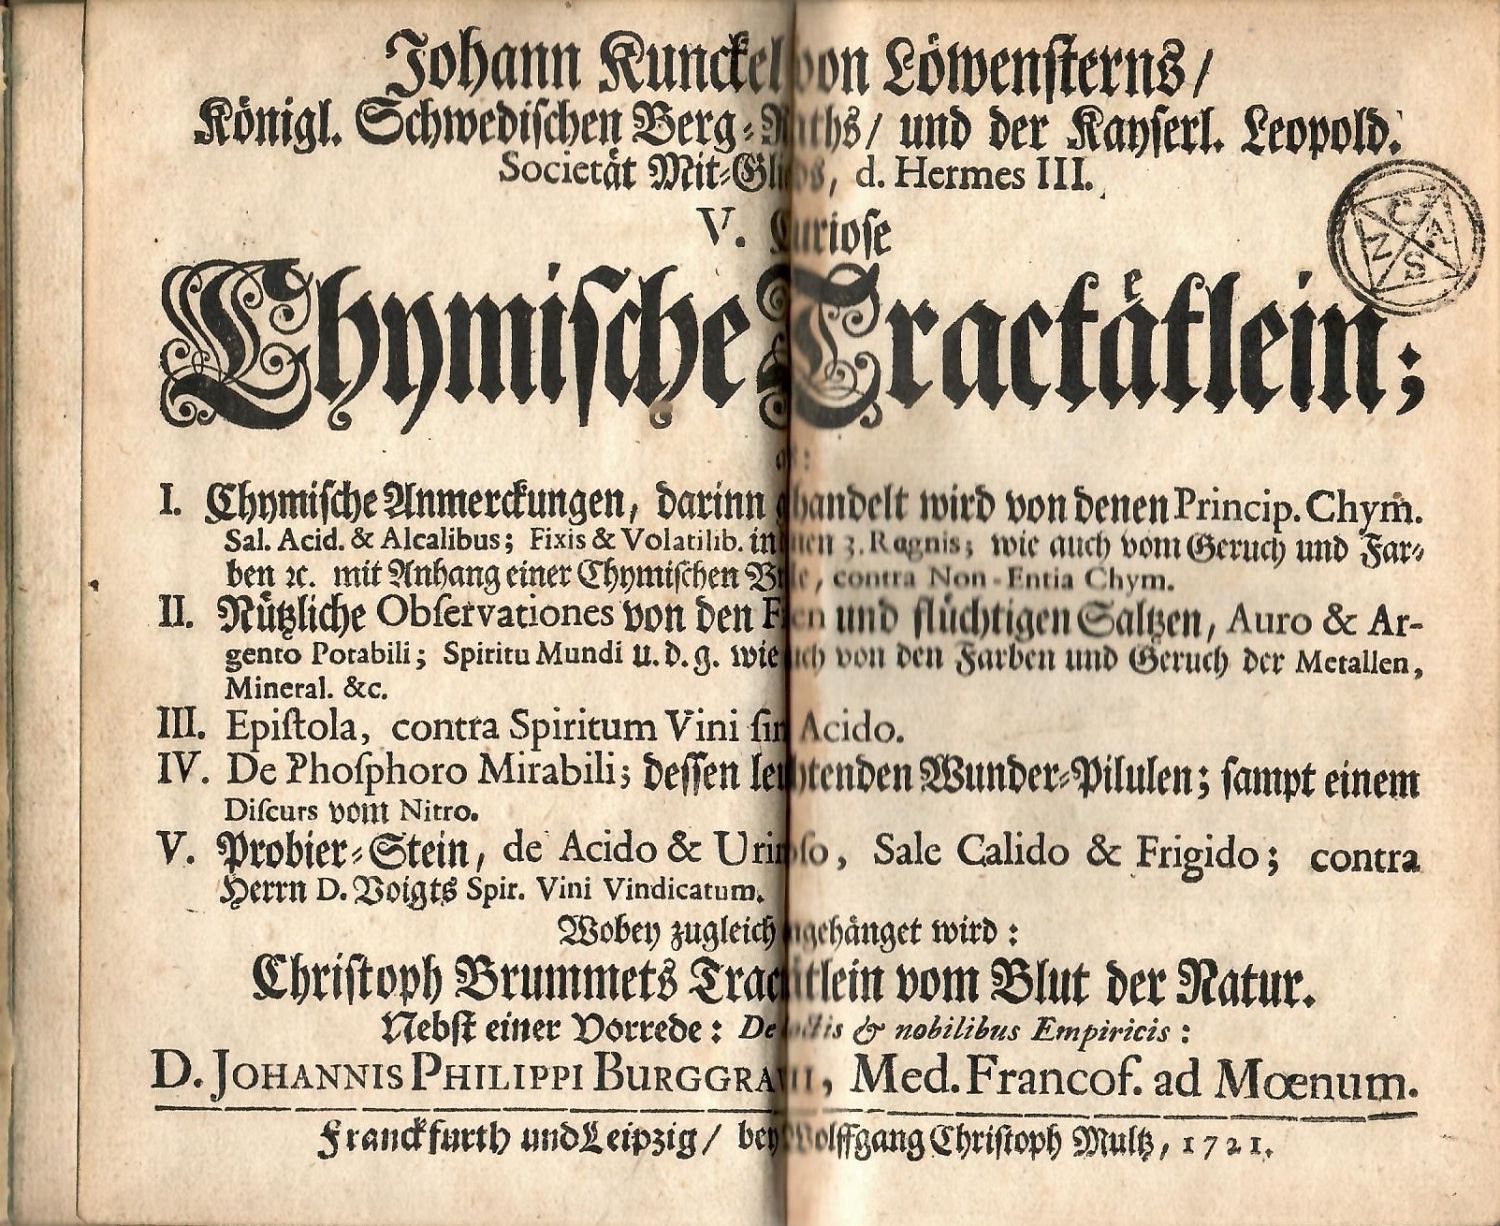 Johann Kunckel von Löwensterns/
Königl. Schwedischen Berg-Raths/ und der Kayserl. Leopold.
Societät Mit-Glieds, d. Hermes III.
V. Curiose
Chymische Tractätlein;
I. Chymische Anmerckungen, darinn gehandelt wird von denen Princip. Chym̃.
Sal. Acid. & Alcalibus; Fixis & Volatilib. in denen 3. Regnis; wie auch vom Geruch und Far-
ben ꝛc. mit Anhang einer Chymischen contra Non-Entia Chym.
II. Nützliche Observationes von den Fixen und flüchtigen Saltzen, Auro & Ar-
gento Potabili; Spiritu Mundi u. d. g. wie auch von den Farben und Geruch der Metallen,
Mineral. &c.
III. Epistola, contra Spiritum Vini sine Acido.
IV. De Phosphoro Mirabili; dessen leuchtenden Wunder-Pilulen; sampt einem
Discurs vom Nitro.
V. Probier-Stein, de Acido & Urinoso, Sale Calido & Frigido; contra
Herrn D. Voigts Spir. Vini Vindicatum.
Wobey zugleich angehänget wird:
Christoph Brummets Tractätlein vom Blut der Natur.
Nebst einer Vorrede: De doctis & nobilibus Empiricis:
D. JOHANNIS PHILIPPI BURGGRAVII, Med. Francof. ad Mœnum.
Franckfurth und Leipzig/ bey Wolffgang Christoph Multz, 1721.
C A S N